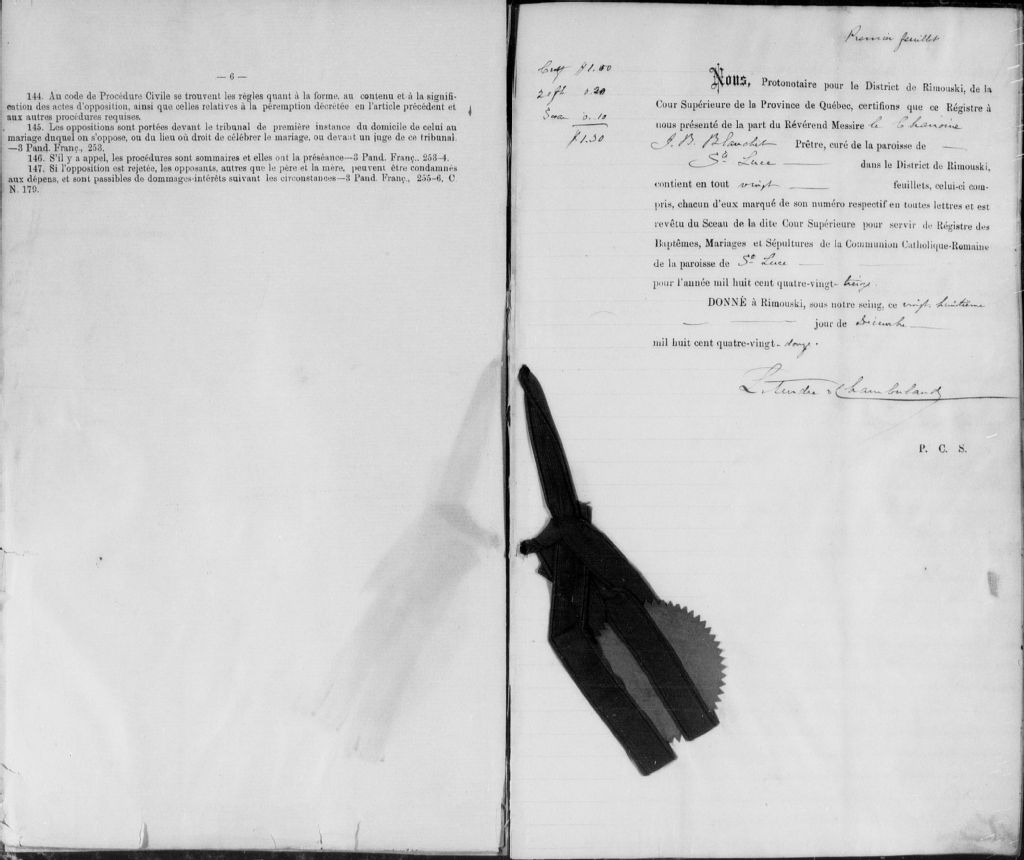 — 6 —
144. Au code de Procédure Civile se trouvent les règles quant à la forme, au contenu et à la signifi-
cation des actes d'opposition, ainsi que celles relatives à la péremption décrétée en l'article précédent et
aux autres procédures requises.
145. Les oppositions sont portées devant le tribunal de première instance du domicile de celui au
mariage duquel on s'oppose, ou du lieu où droit de célébrer le mariage, ou devant un juge de ce tribunal.
—3 Pand. Franç., 253.
146. S'il y a appel, les procédures sont sommaires et elles ont la préséance—3 Pand. Franç., 253-4.
147. Si l'opposition est rejetée, les opposants, autres que le père et la mère, peuvent être condamnés
aux dépens, et sont passibles de dommages-intérêts suivant les circonstances—3 Pand. Franç., 255-6, C.
N. 179.
Premier feuillet
Certf $1.00
20 fts 0.20
Sceau 0.10
$1.30
Nous, Protonotaire pour le District de Rimouski, de la
Cour Supérieure de la Province de Québec, certifions que ce Régistre à
nous présenté de la part du Révérend Messire le Chanoine
J. B. Blanchet Prêtre, curé de la paroisse de —
Ste Luce — dans le District de Rimouski,
contient en tout vingt — feuillets, celui-ci com-
pris, chacun d'eux marqué de son numéro respectif en toutes lettres et est
revêtu du Sceau de la dite Cour Supérieure pour servir de Régistre des
Baptêmes, Mariages et Sépultures de la Communion Catholique-Romaine
de la paroisse de Ste Luce —
pour l'année mil huit cent quatre-vingt-treize.
DONNÉ à Rimouski, sous notre seing, ce vingt-huitième
— — jour de décembre —
mil huit cent quatre-vingt-douze.
Letendre & Chamberland
P. C. S.